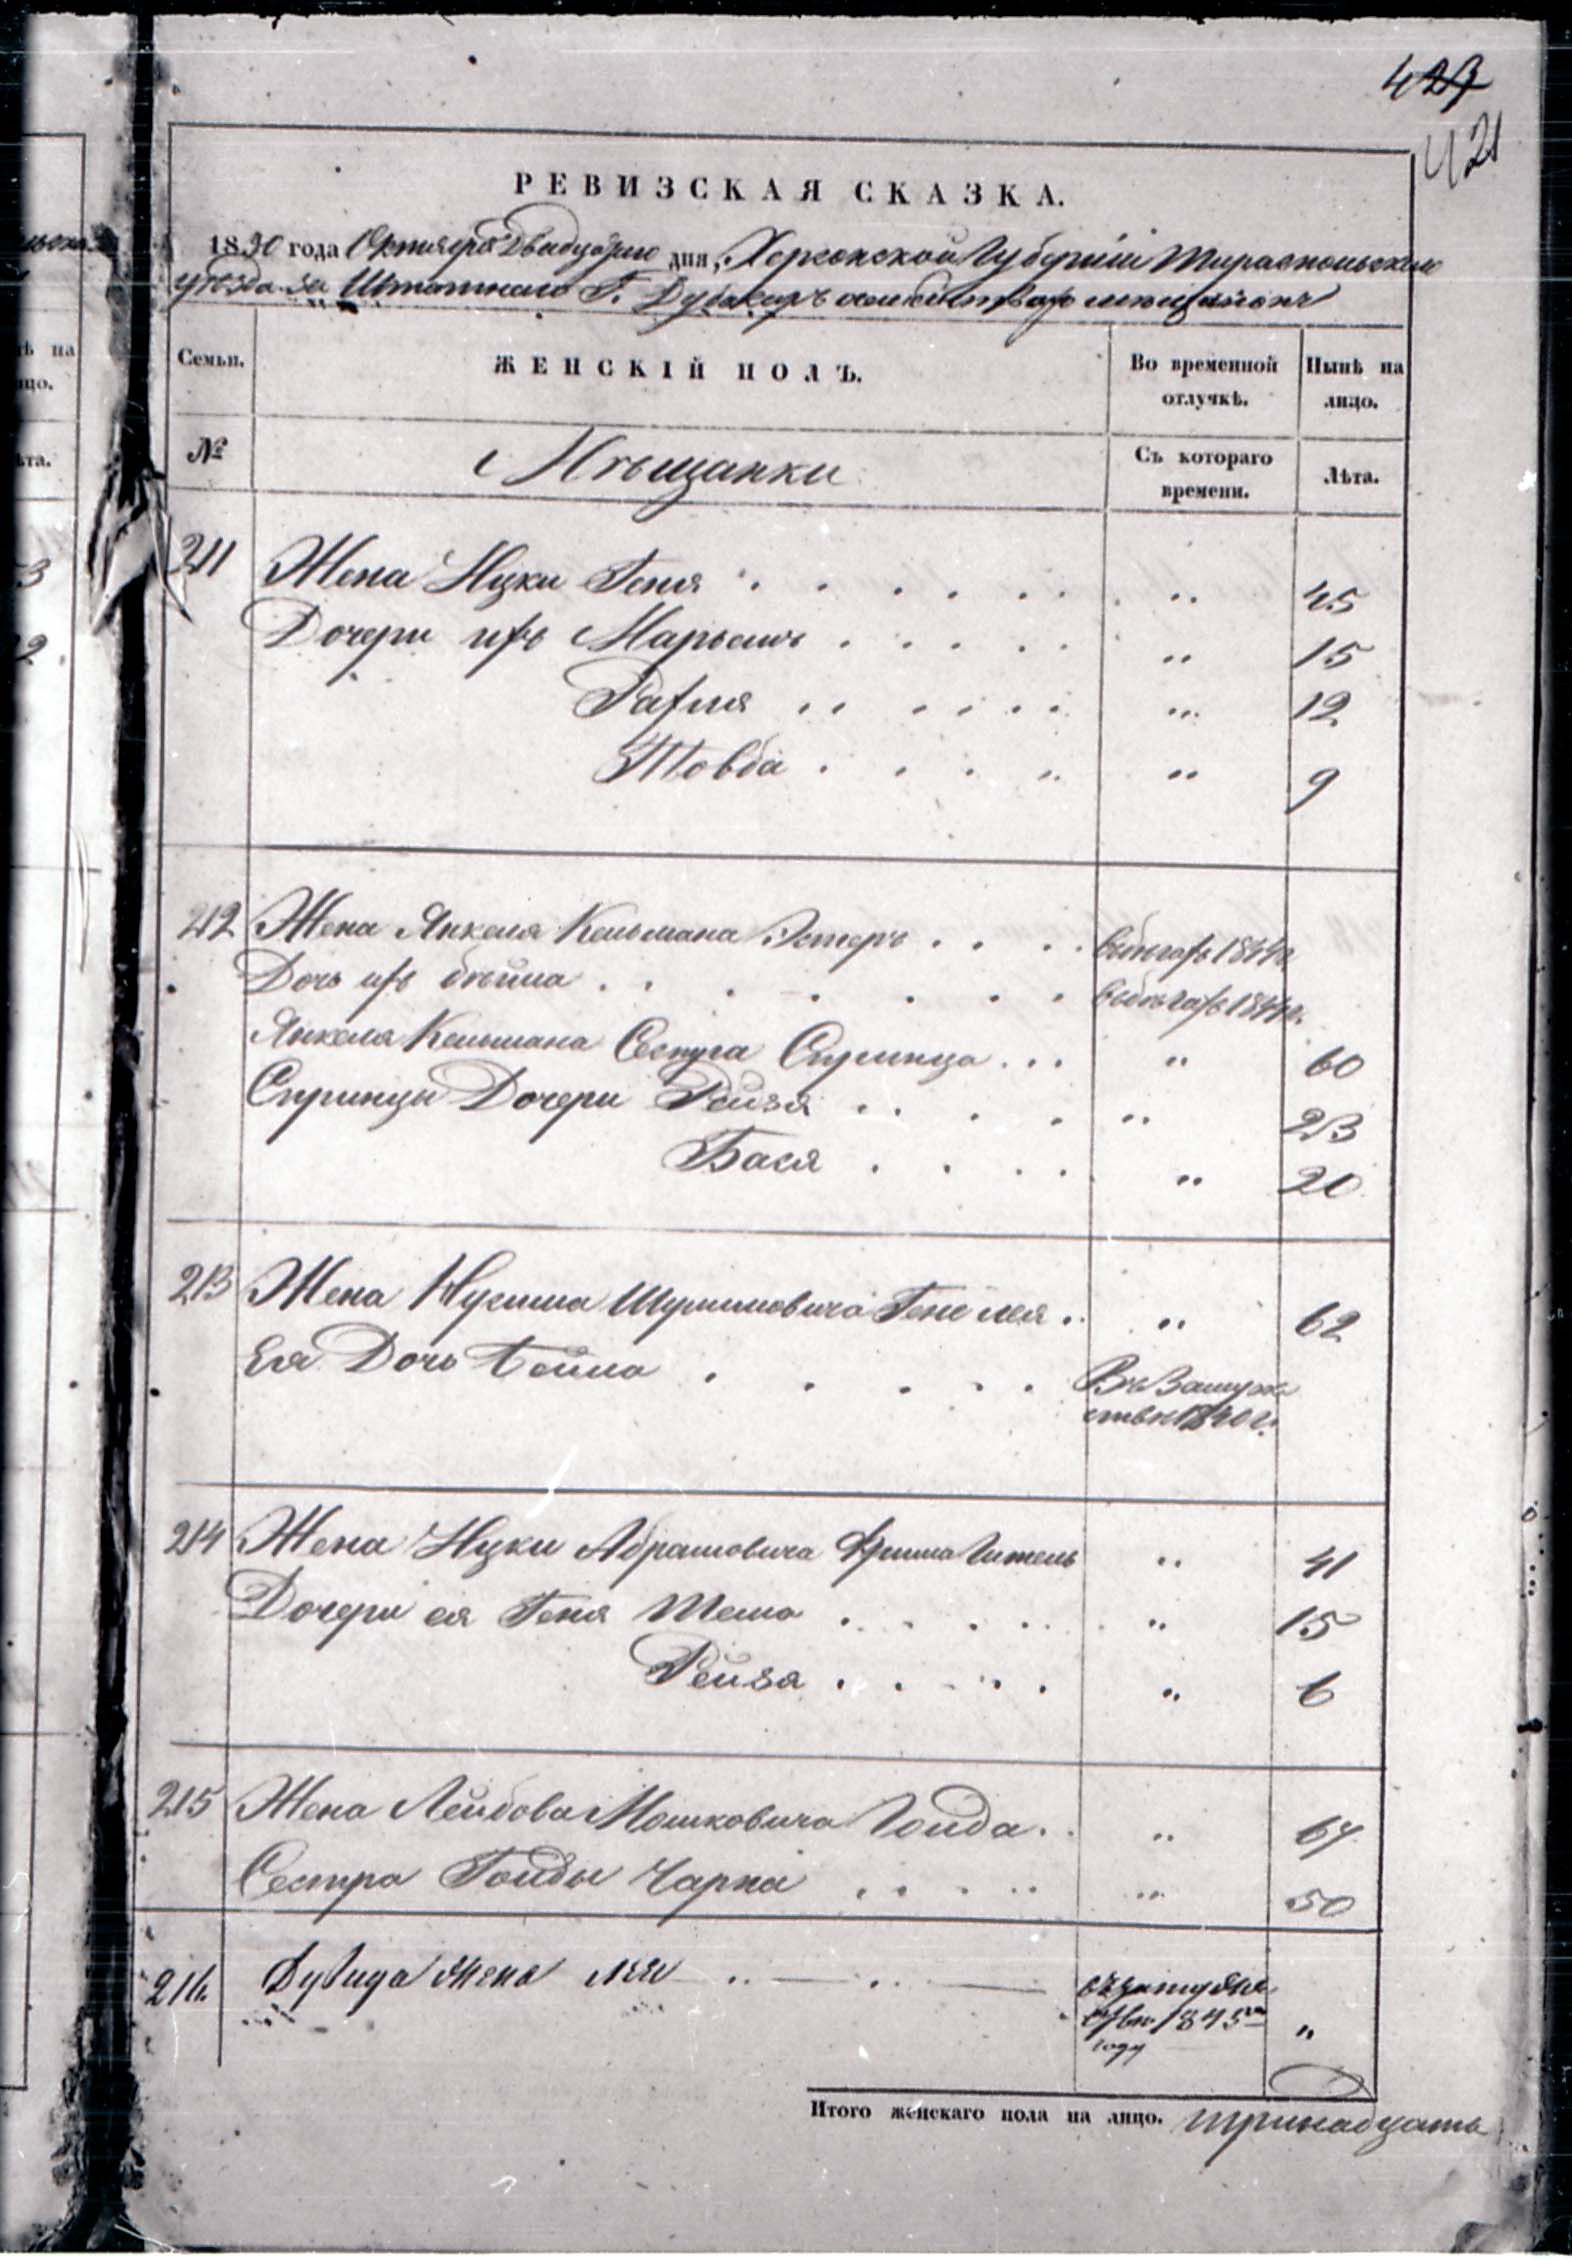 423
421
РЕВИЗСКАЯ СКАЗКА.
1850 года Октября Двадцатаго дня, Херсонской Губерніи Тираспольскаго
уѣзда Заштатнаго Г. Дубосаръ мѣщанъ
Семьи.
ЖЕНСКІЙ ПОЛЪ.
Во временной отлучкѣ.
Нынѣ на лицо.
№
Мѣщанки
Съ котораго времени.
Лѣта.
211 Жена Ицки Геня . . . . . . . „ 45
Дочери ихъ Марьемъ . . . . . „ 15
Рахля . . . . . . „ 12
Товба . . . . „ 9
212 Жена Янкеля Кельмана Эстеръ . . . . въ бѣгахъ 1844г.
Дочь ихъ Бейла . . . . . . . въ бѣгахъ 1844г.
Янкеля Кельмана Сестра Сприца . . . „ 60
Спринцы Дочери Рейзя . . . . „ 23
Бася . . . . „ 20
213 Жена Нусима Шулимовича Гене Лея . . „ 62
Ея Дочь Бейла . . . . . Въ Замуже
ствѣ 1840г.
214 Жена Ицки Абрамовича Фрима Гитель „ 41
Дочери ея Геня Шема . . . . . . „ 15
Рейза . . . . . „ 6
215 Жена Лейбова Мошковича Гоида . . „ 67
Сестра Гоиды Чарна . . . . . „ 50
216. Дувида Жена Лея въ замуже
ствѣ 1845го „
году
Итого женскаго пола на лицо. тринадцать